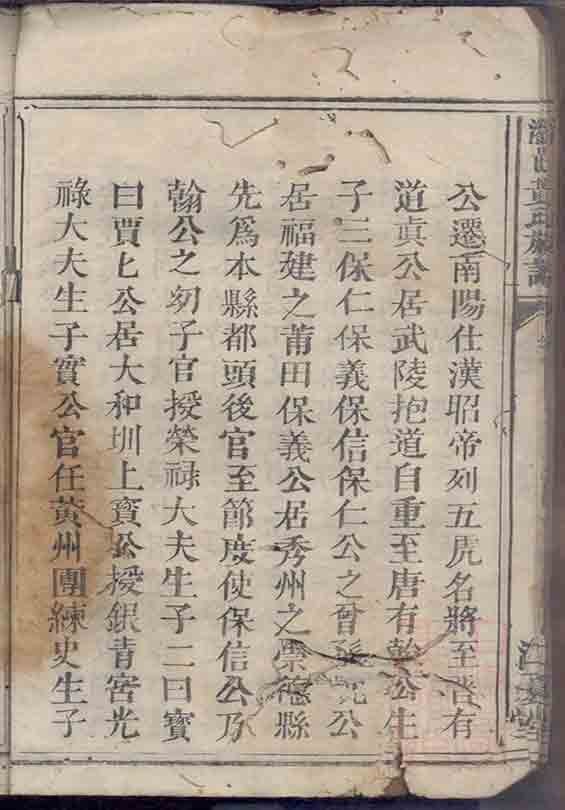 公遷南陽仕漢昭帝列五虎名將至晋有
道真公居武陵抱道自重至唐有翰公生
子三保仁保義保信保仁公之曾孫公
居福建之莆田保義公居秀州之崇德縣
先爲本縣都頭後官至節度使保信公乃
翰公之㓜子官授榮祿大夫生子二曰寶
曰賈七公居大和圳上寶公授銀青宮光
祿大夫生子實公官任黃州團練史生子
黃氏族譜
江夏堂